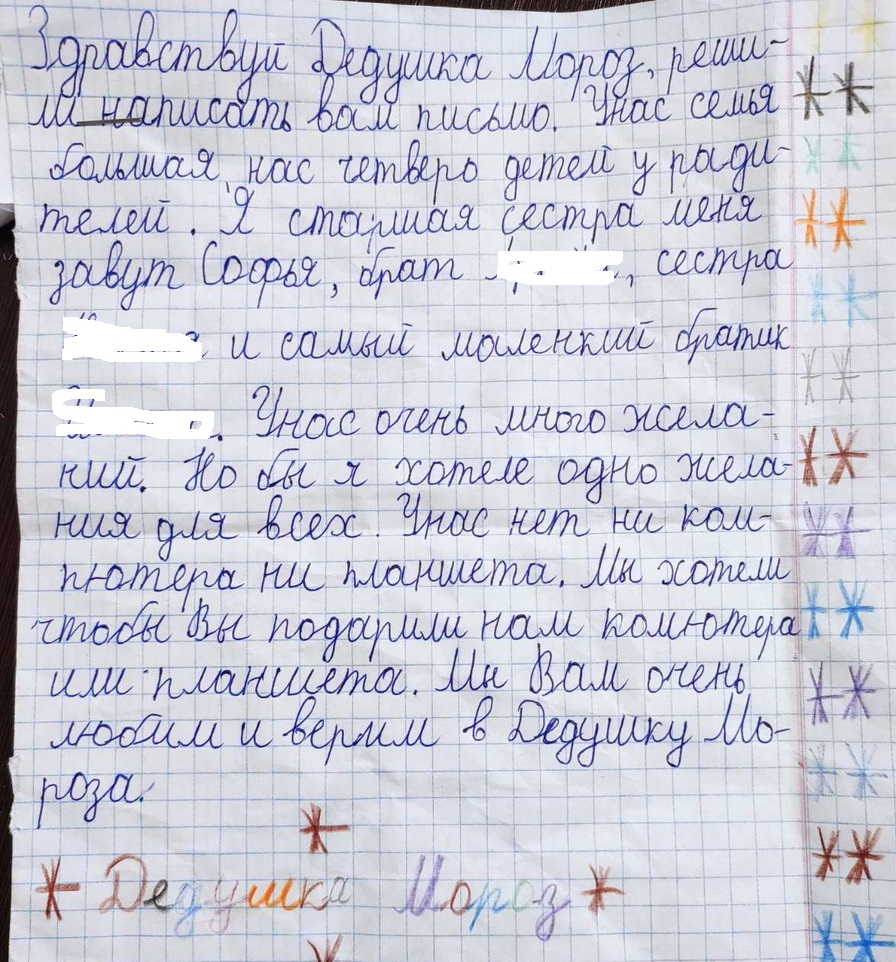 Здравствуй Дедушка Мороз, реши-
ли написать вам письмо. Унас семья
большая, нас четверо детей у роди-
телей. Я старшая сестра меня
завут Софья, брат , сестра
и самый маленкий братик
. Унас очень много жела-
ний. Но бы я хотеле одно жела-
ния для всех. Унас нет ни ком-
пютера ни планшета. Мы хотели
чтобы Вы подарили нам комютера
или планшета. Мы Вам очень
любим и верим в Дедушку Мо-
роза.
Дедушка Мороз